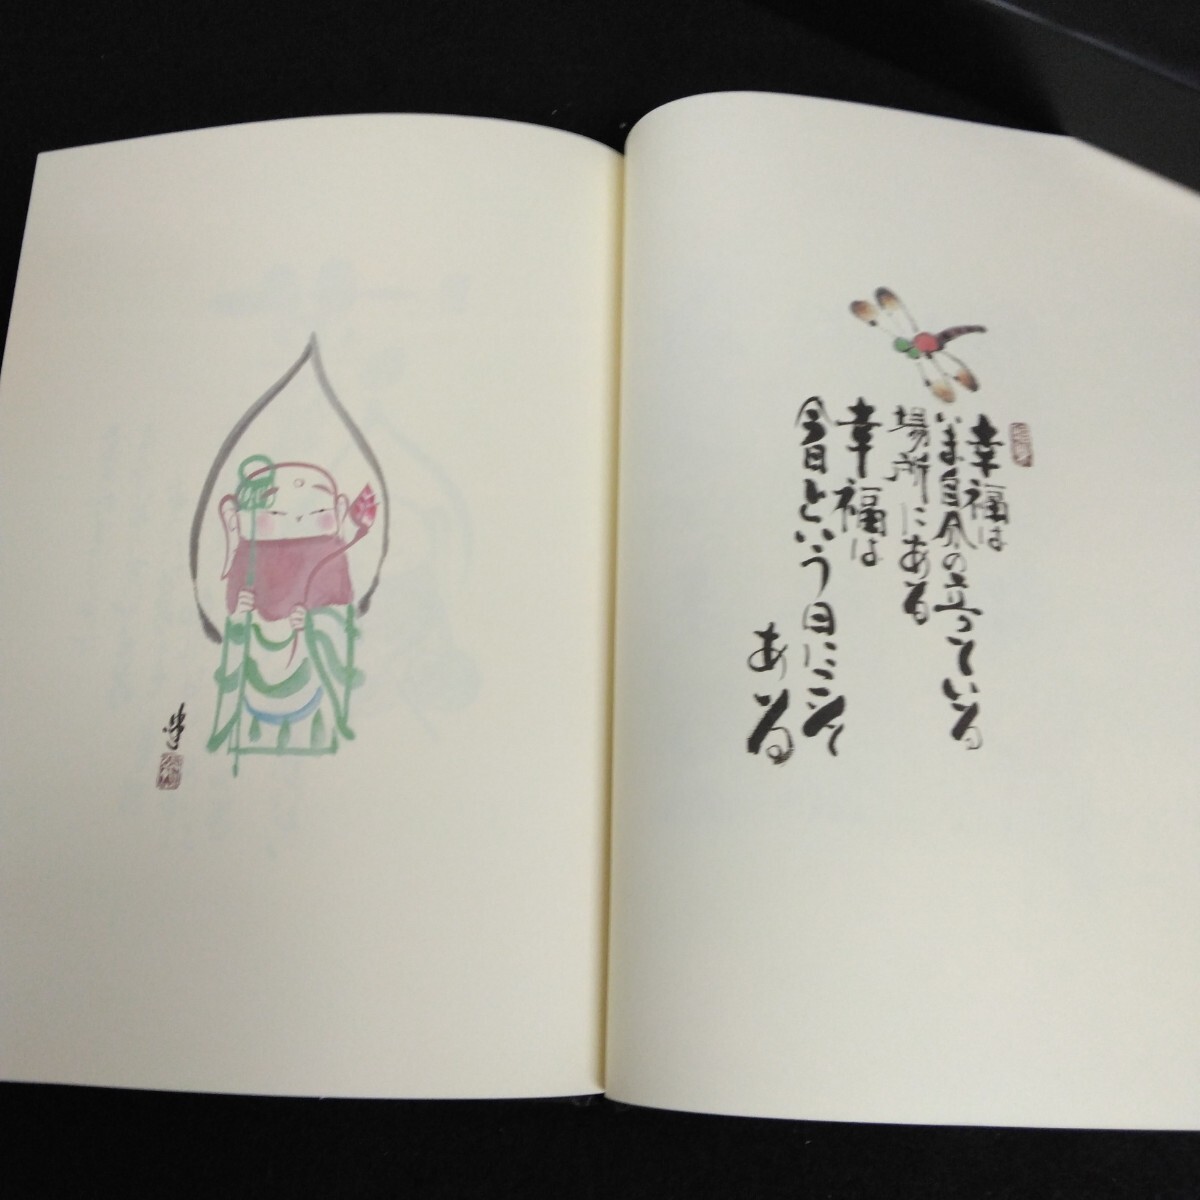 幸福は
いま自分の立っている
場所にある
幸福は
今日という日にこそ
ある